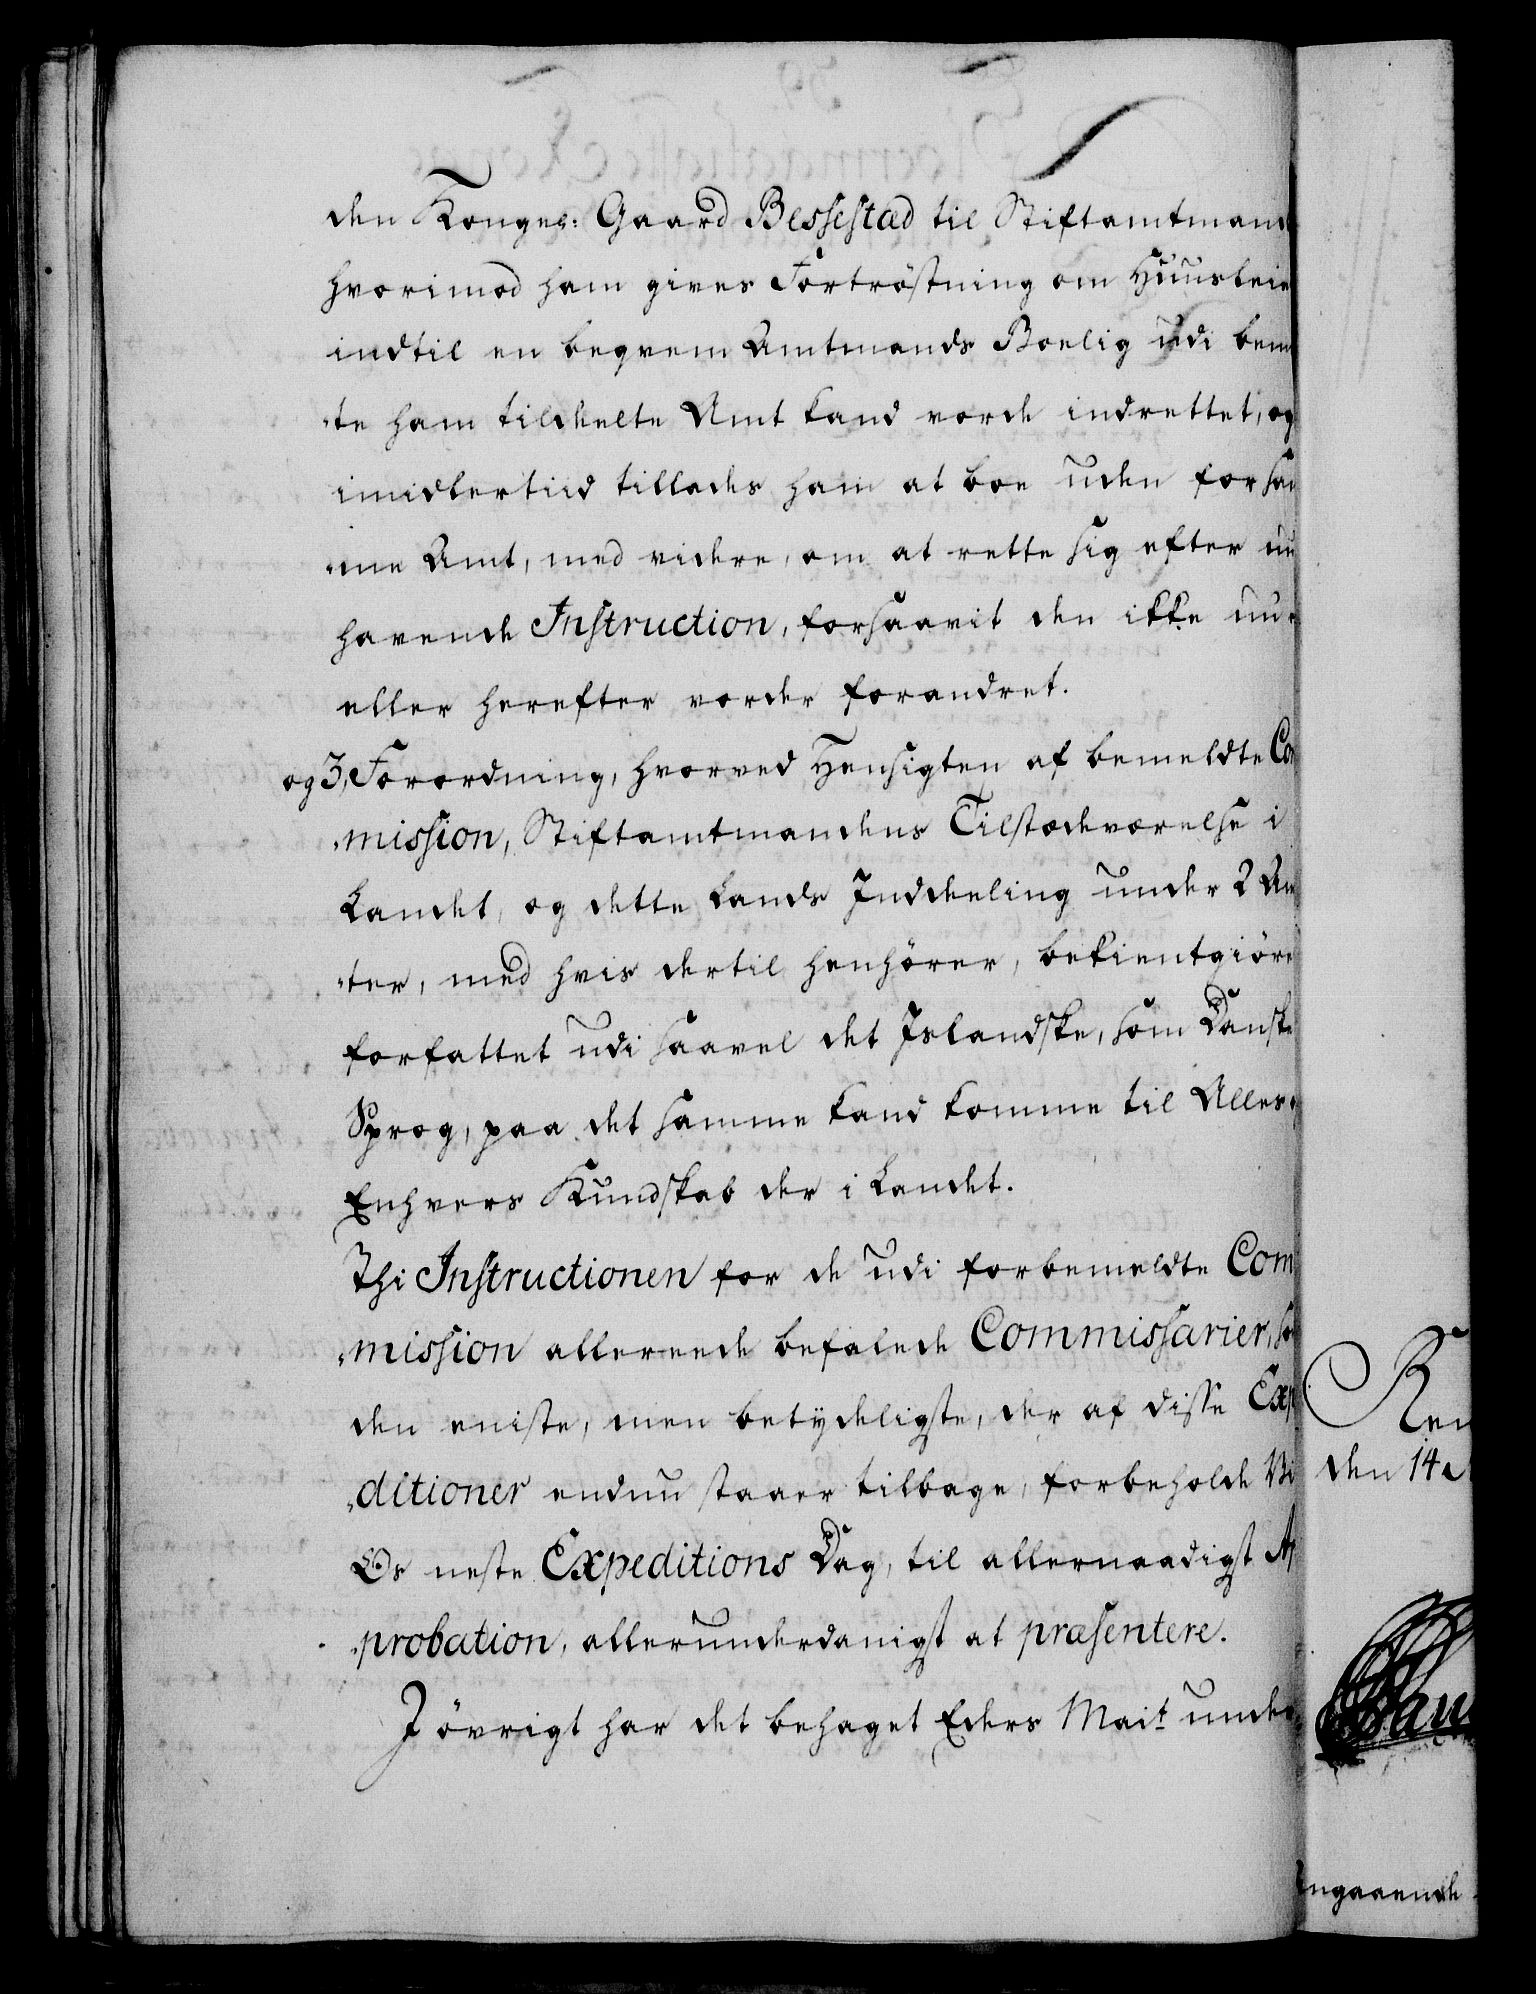 den Kongel: Gaard Bessestad til Stiftamtmand
hvorimod ham gives Fortröstning om Huusleie
indtil en beqvem Amtmands Boelig udi bem
te ham tildeelte Amt kand vorde indrettet, og
imidlertiid tillades ham at boe uden for sam
me Amt, med videre, om at rette sig efter nu
havende Instruction, forsaavit den ikke nu
eller herefter vorder forandret.
og 3, Forordning, hvorved Hensigten af bemeldte Com
mission, Stiftamtmandens Tilstædeværelse i
Landet, og dette Lands Inddeeling under 2 Am
ter, med hvis dertil henhörer, bekientgiöre
forfattet udi saavel det Islandske, som Danske
Sprog, paa det samme kand komme til Alles
Enhvers Kundskab der i Landet.
Thi Instructionen for de udi forbemeldte Com
mission allereede befalede Commissarier, so
den eniste, men betydeligste, der af disse Exp
ditioner endnu staaer tilbage, forbeholde Vi
Os neste Expeditions Dag, til allernaadigst Ap
probation, allerunderdanigst at præsentere.
I övrigt har det behaget Eders Mait under
den 14
ngaaende